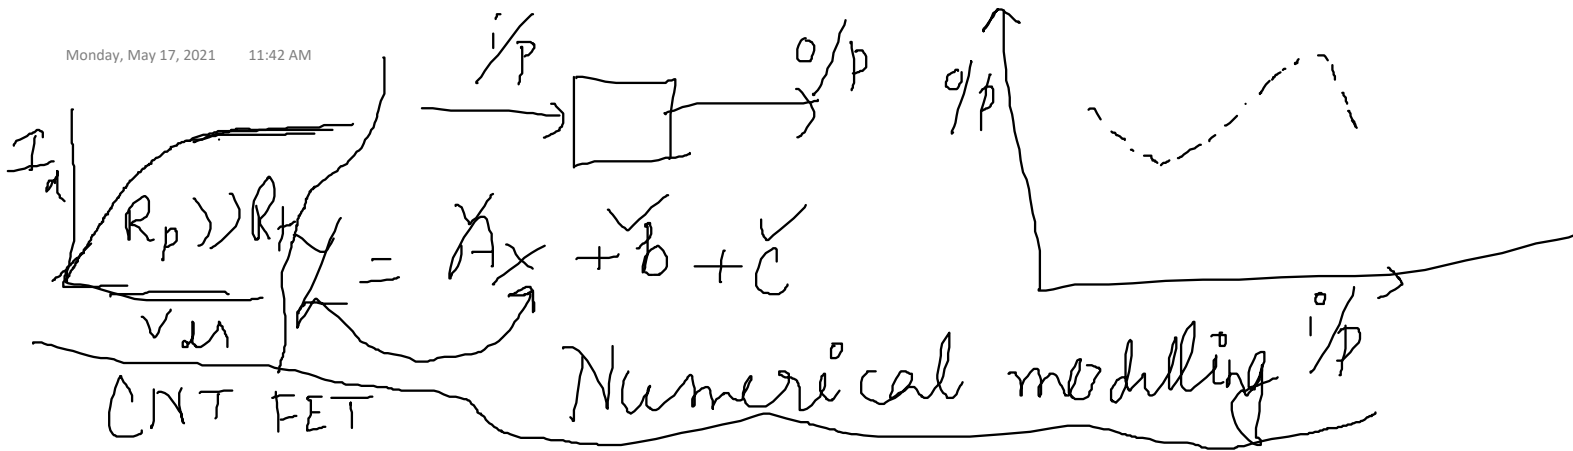 Monday, May 17, 2021 11:42 AM
i/p
o/p
o/p
I_d
R_p >> R_t
y = Ax + b + c
V_ds
i/p
CNT FET
Numerical modelling